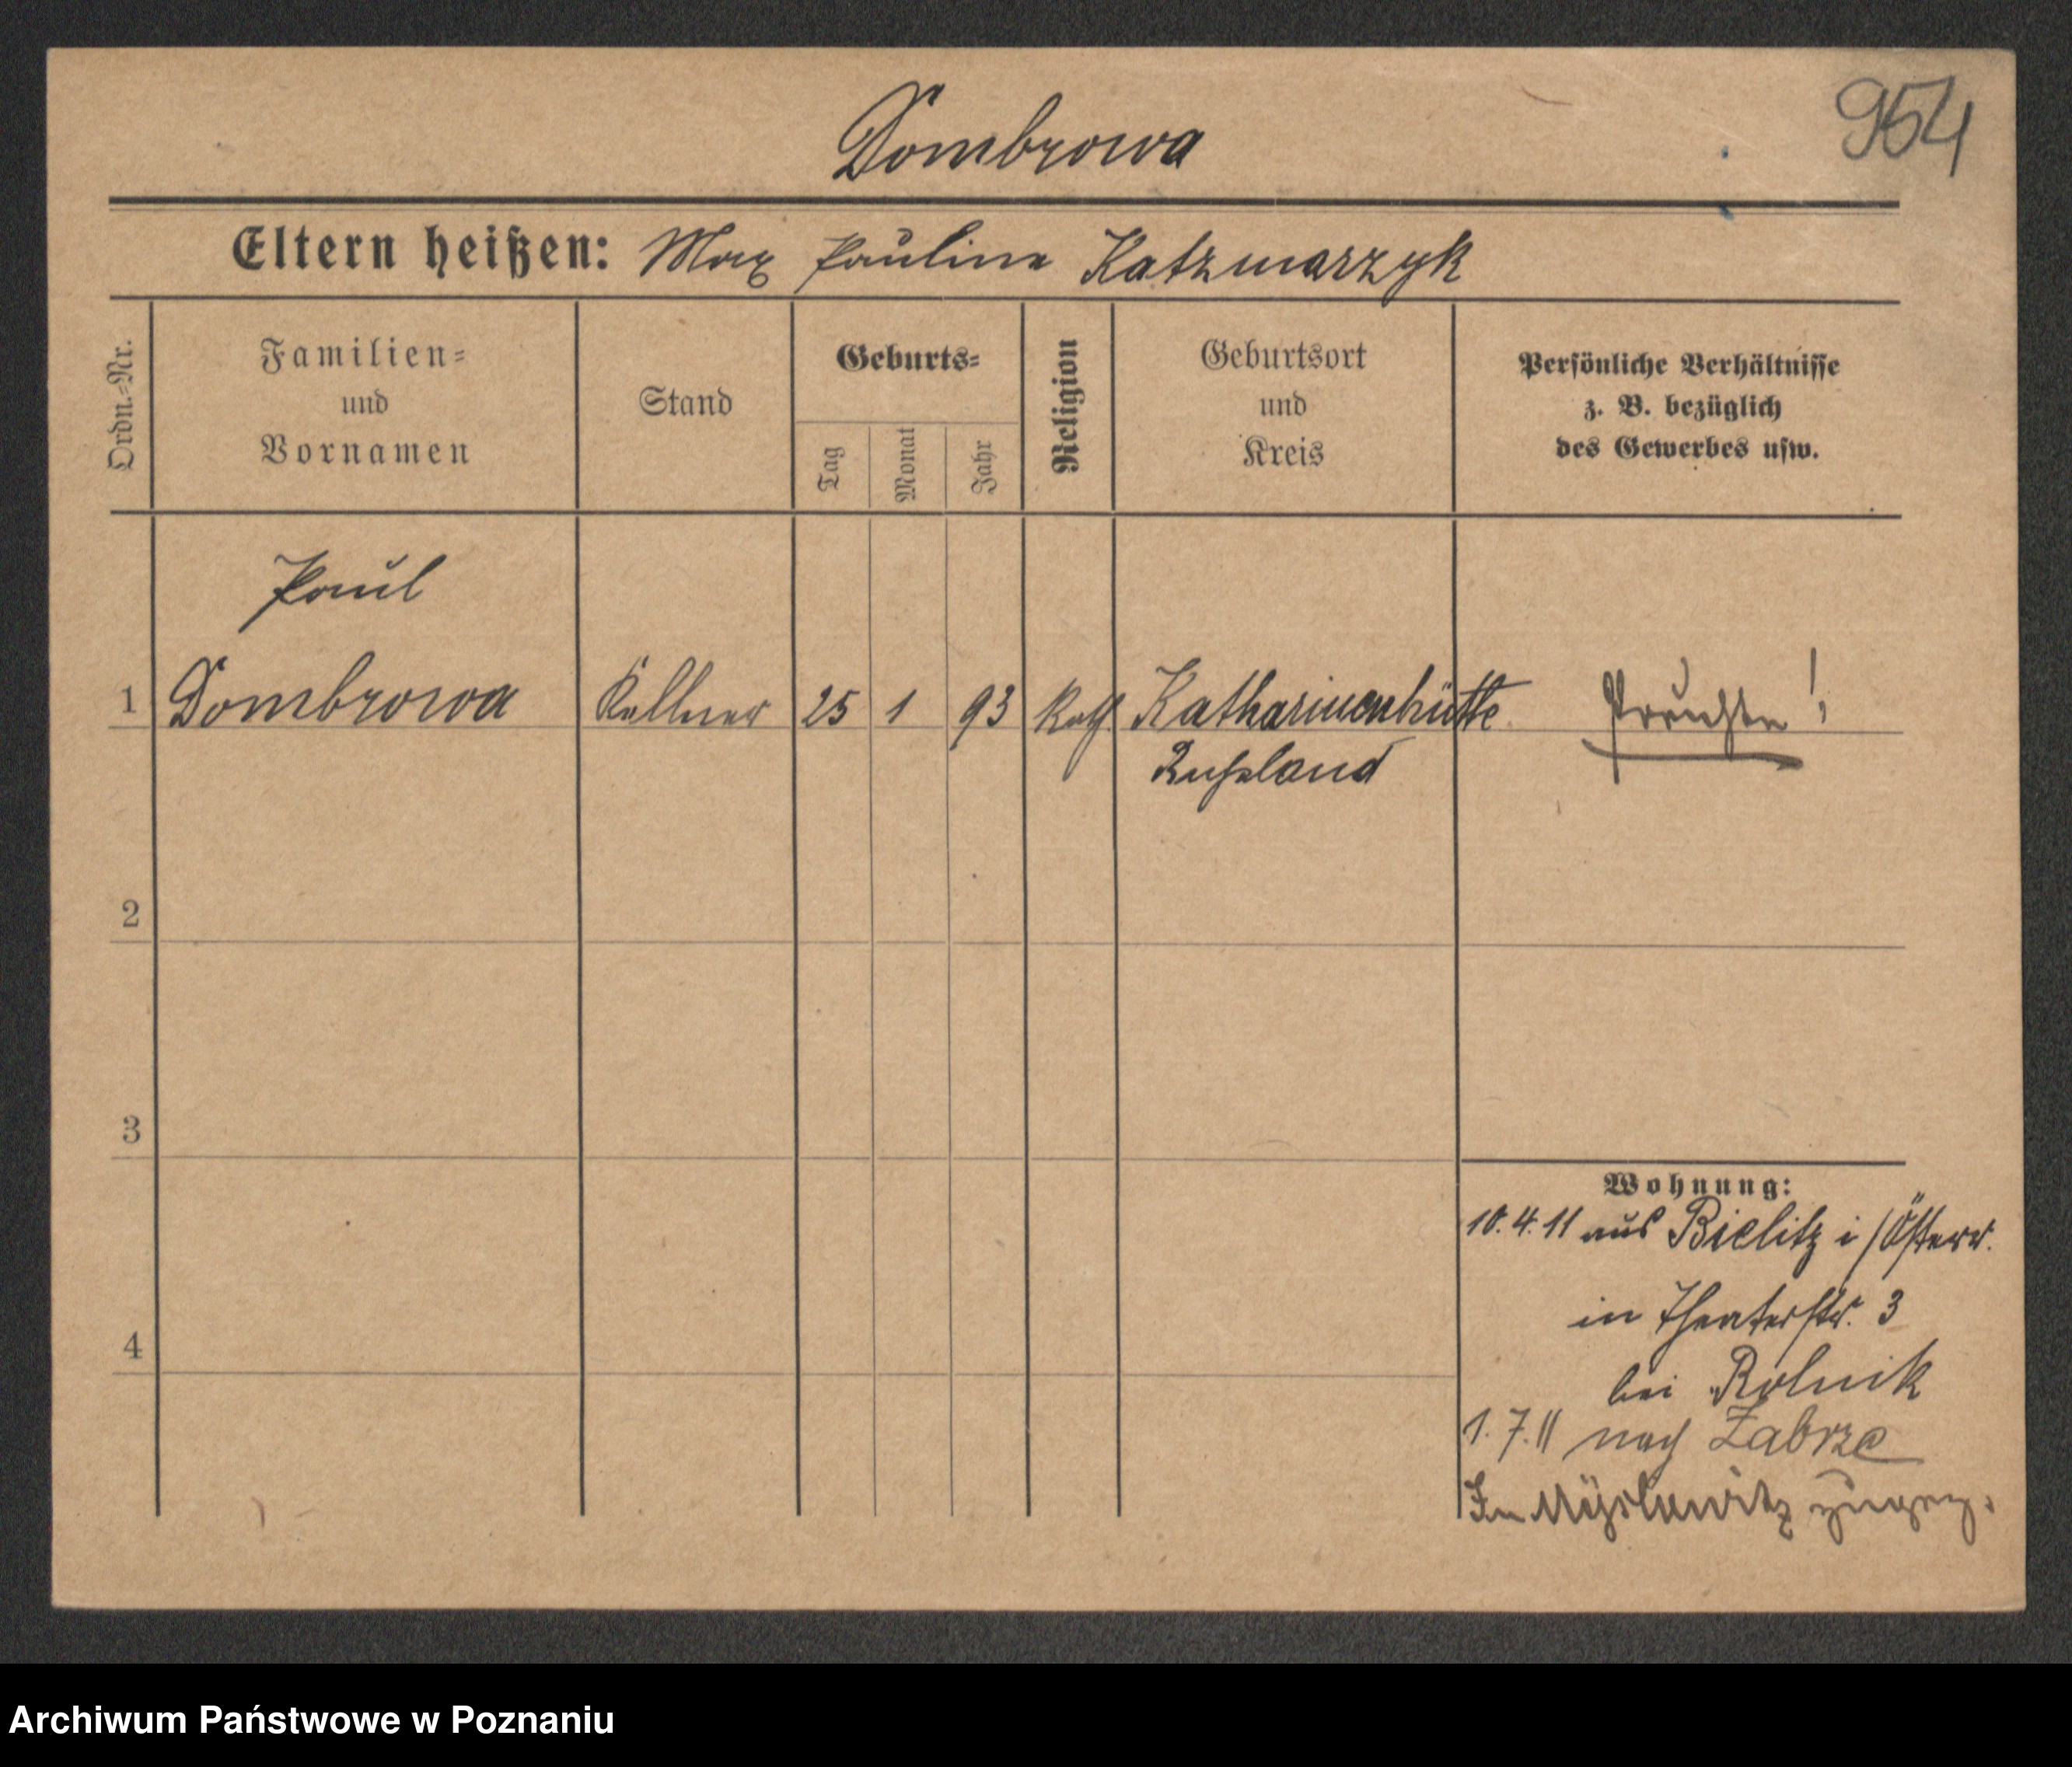 954
Dombrowa
Eltern heißen: Max Pauline Katzmarzyk
Ordn.-Nr.
Familien-
und
Vornamen
Stand
Geburts-
Tag
Monat
Jahr
Religion
Geburtsort
und
Kreis
Persönliche Verhältnisse
z. B. bezüglich
des Gewerbes usw.
Paul
1 Dombrowa Kellner 25 1 93 Kath. Katharinenhütte
Russland
2
3
4
Wohnung:
10.4.11 aus Bielitz i/Österr.
in Theaterstr. 3
bei Rolnik
1.7.11 nach Zabrze
In Myslowitz zugez.
Archiwum Państwowe w Poznaniu